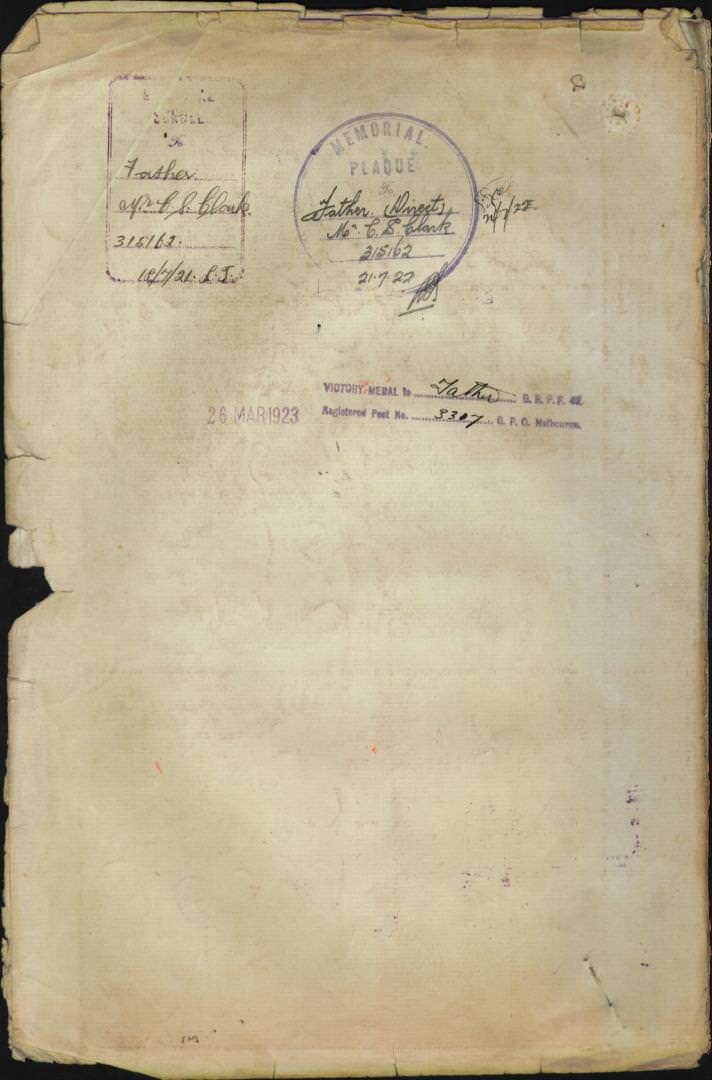 SCROLL
To
Father.
Mr C. S. Clark.
315162.
18/7/21. L.J.
MEMORIAL.
PLAQUE
To
Father. Direct,
Mr. C. S. Clark
315162
21.7.22
VICTORY MEDAL to Father B.R.P.F. 42.
Registered Post No. 3307. G. P. O. Melbourne.
26 MAR 1923